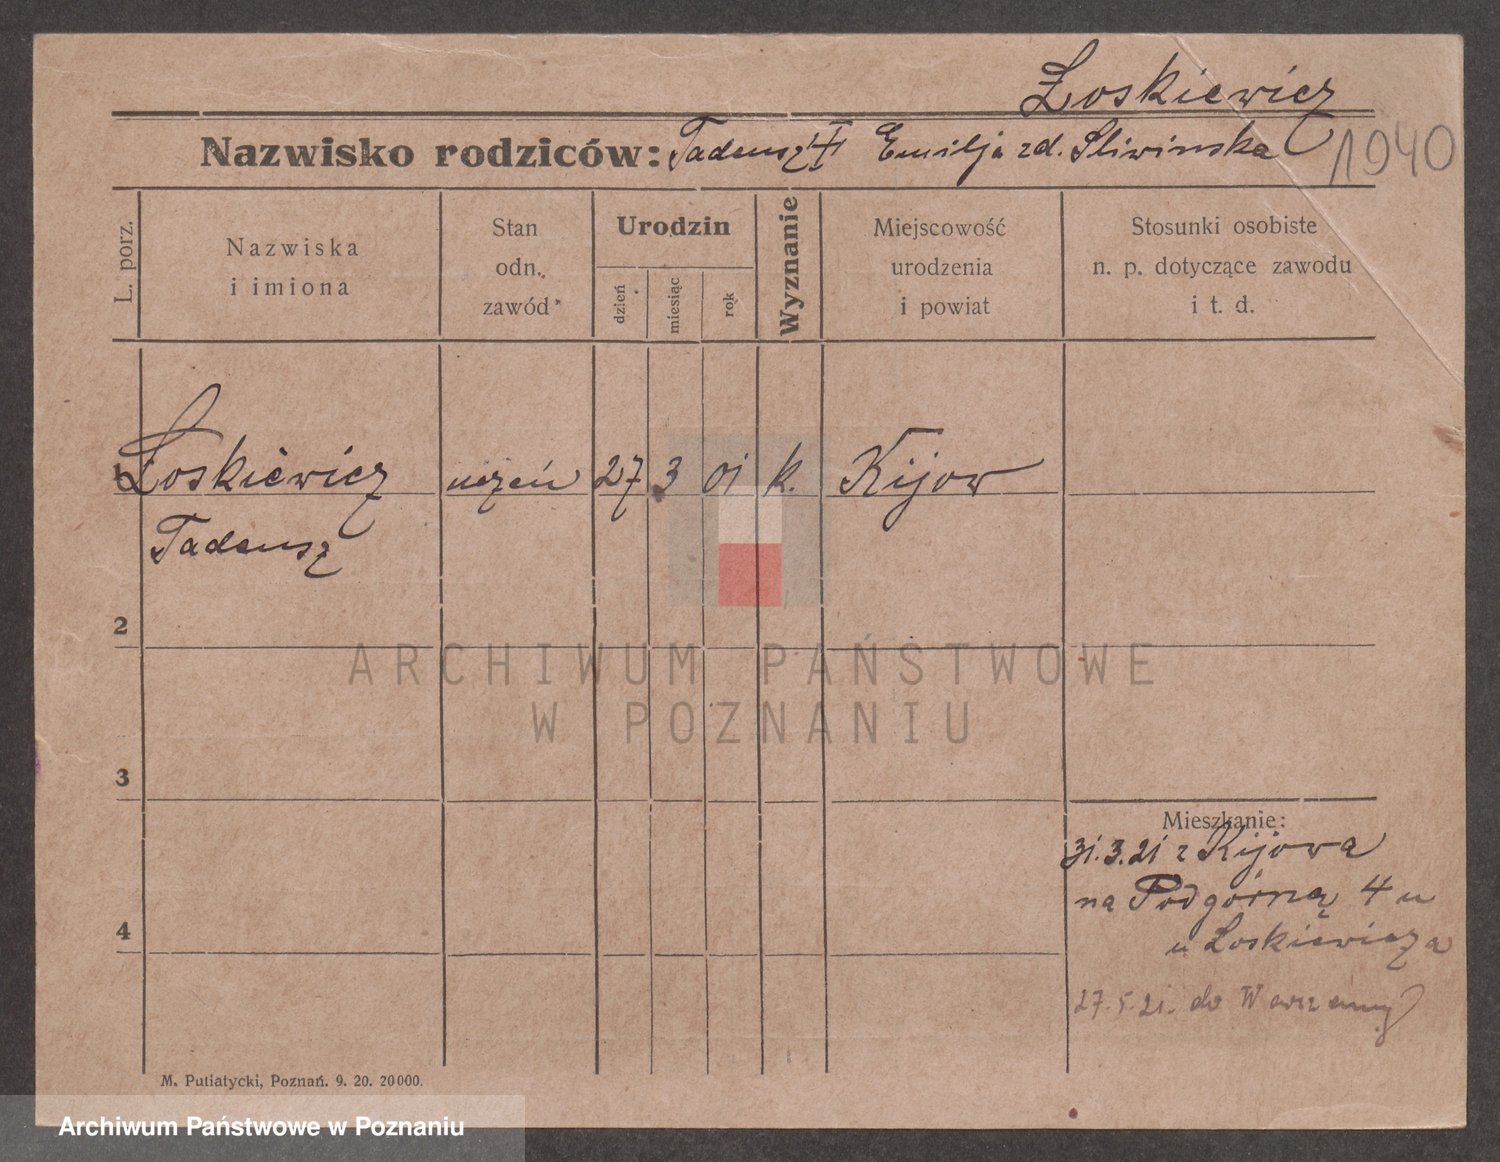 Łoskiewicz
Nazwisko rodziców: Tadeusz Emilja zd. Sliwinska
1040
L. porz.
Nazwiska
i imiona
Stan
odn.
zawód
Urodzin
dzień
miesiąc
rok
Wyznanie
Miejscowość
urodzenia
i powiat
Stosunki osobiste
n. p. dotyczące zawodu
i t. d.
1 Łoskiewicz uczeń 27 3 01 k. Kijow
Tadeusz
2
ARCHIWUM PAŃSTWOWE
W POZNANIU
3
Mieszkanie:
31.3.21 z Kijowa
na Podgórną 4
u Łoskiewicza
4
27.5.21. do Warszawy
M. Putiatycki, Poznań. 9. 20. 20000.
Archiwum Państwowe w Poznaniu